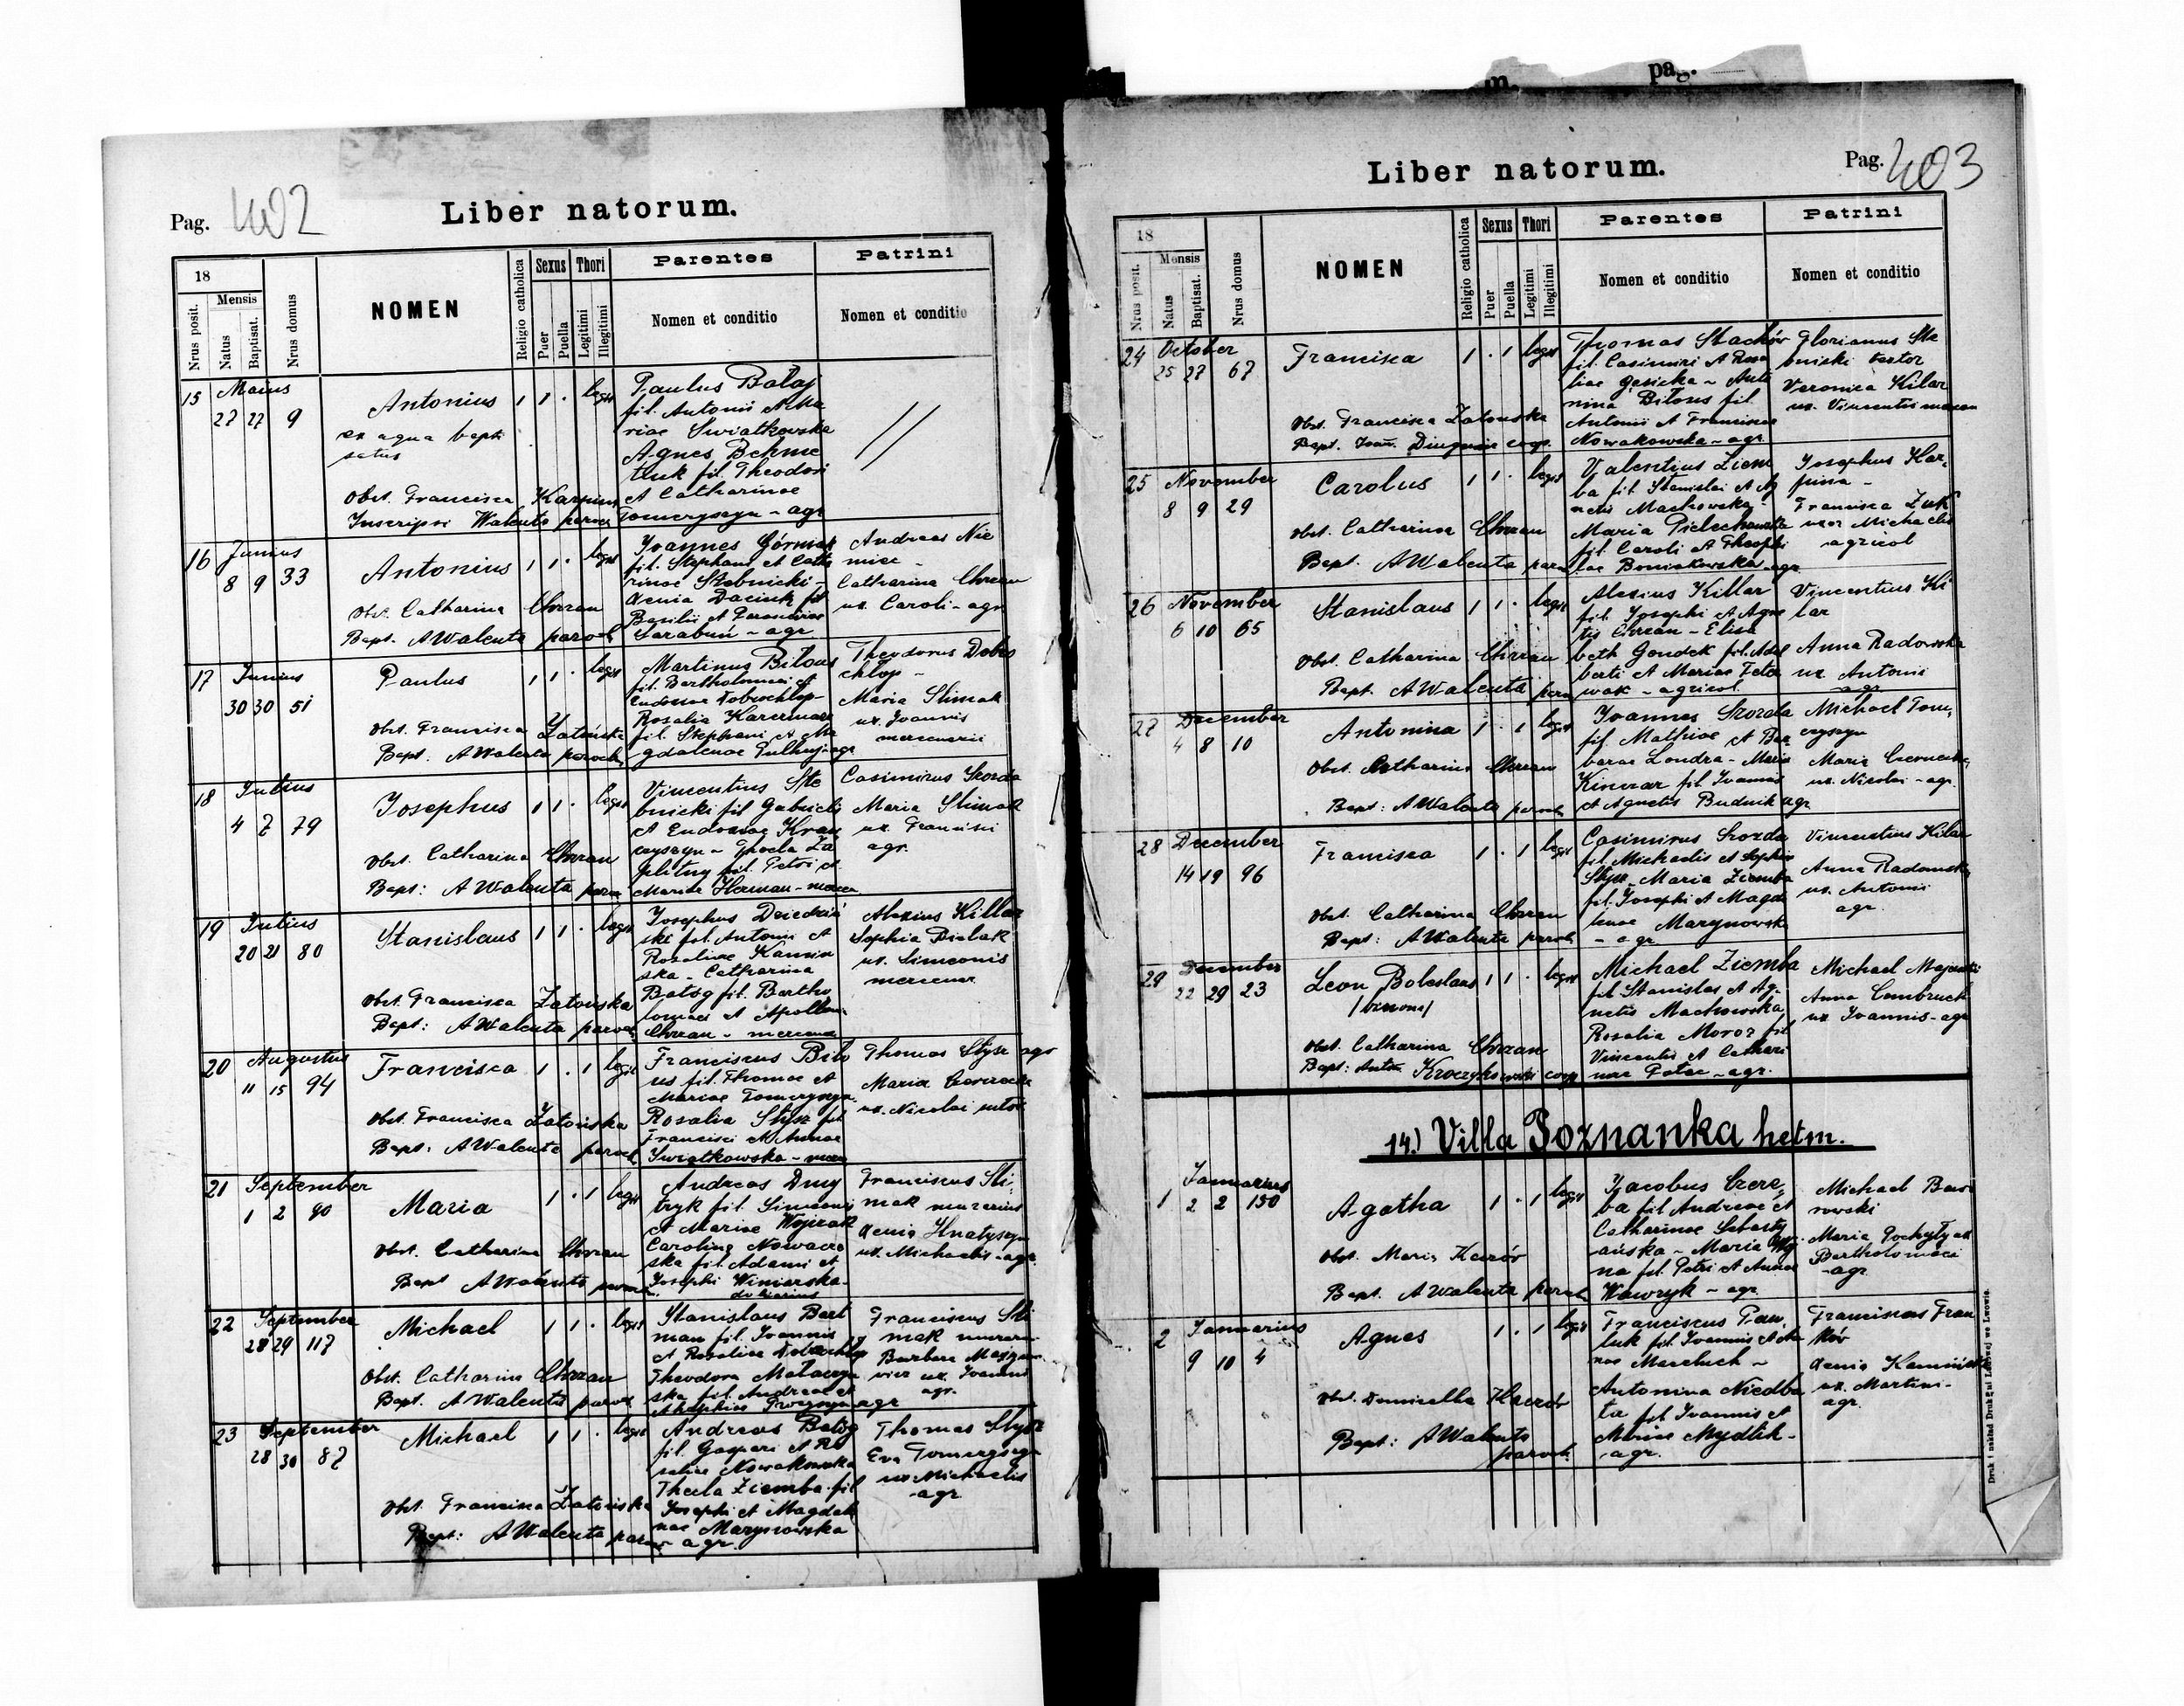 pag.
Pag. 402
Liber natorum.
18
Nrus posit.
Mensis
Natus
Baptisat.
Nrus domus
NOMEN
Religio catholica
Sexus
Puer
Puella
Thori
Legitimi
Illegitimi
Parentes
Nomen et conditio
Patrini
Nomen et conditio
15 Maius
27 27 9
Antonius 1 1 . legit
ex aqua bapti
satus
Obst. Francisca
Inscripsi Walenta paroch
Paulus Bałaj
fil. Antonii et Ma
riae Swiatkowska
Agnes
fil. Theodori
et Catharinae
Tomczyszyn - agr
16 Junius
8 9 33
Antonius 1 1 . legit
Obst. Catharina Chrzan
Bapt. A Walenta paroch
Joannes Górniak
fil. Stephani et Catha
rinae
Xenia Daciuk fil
Basilii et
Sarabun - agr
Andreas Nie
miec -
Catharina Chrzan
ux. Caroli - agr
17 Junius
30 30 51
Paulus 1 1 . legit
Obst. Francisca Zatońska
Bapt. A Walenta paroch
Martinus Bilous
fil. Bartholomaei et
Eudoxiae Dobrochłop -
Rosalia
fil. Stephani et Ma
gdalenae agr
Theodorus Dobro
chłop -
Maria Slimak
ux. Joannis
mercenarii
18 Julius
4 7 79
Josephus 1 1 . legit
Obst. Catharina Chrzan
Bapt: A Walenta paroch
Vincentius Ste
bnicki fil Gabrielis
et Eudoxiae
fil. Petri et
Mariae Herman - merce
Casimirus Szozda
Maria Slimak
ux. Francisci
agr.
19 Julius
20 21 80
Stanislaus 1 1 . legit
Obst. Francisca Zatońska
Bapt: A Walenta paroch
Josephus Dziedzi
ski fil. Antonii et
Rosaliae Kamin
ska - Catharina
Batog fil. Bartho
lomaei et Apollon
Chrzan - mercena
Alexius Killar
Sophia Bielak
ux. Simeonis
mercenar
20 Augustus
11 15 94
Francisca 1 . 1 legit
Obst. Francisca Zatońska
Bapt: A Walenta paroch
Franciscus Bilo
us fil. Thomae et
Mariae Tomczyszyn
Rosalia Stysz fil
Francisci et Annae
Swiatkowska - merc
Thomas Stysz agr
Maria
ux. Nicolai
21 September
1 2 90
Maria 1 . 1 legit
Obst. Catharina Chrzan
Bapt A Walenta paroch
Andreas Dmy
tryk fil. Simeonis
et Mariae Wojczak
Carolina Nowacz
ska fil. Adami et
Josephi Winiarska -
Franciscus Sli
mak
Xenia Hnatyszyn
ux. Michaelis - agr
22 September
28 29 117
Michael 1 1 . legit
Obst. Catharina Chrzan
Bapt. A Walenta paroch
Stanislaus Bert
man fil. Joannis
et Rosaliae Dobrochłop
Theodora
ska fil. Andreae et
agr
Franciscus Sli
mak
Barbara
ux. Joannis
agr.
23 September
28 30 87
Michael 1 1 . legit
Obst. Francisca Zatońska
Bapt: A Walenta paroch
Andreas Batog
fil. Gaspari et Ro
saliae Nowakowska
Thecla Ziemba fil
Josephi et Magdale
nae Marynowska
- agr.
Thomas Stysz
Eva Tomczyszyn
ux. Michaelis
- agr.
Pag. 403
Liber natorum.
18
Nrus posit.
Mensis
Natus
Baptisat.
Nrus domus
NOMEN
Religio catholica
Sexus
Puer
Puella
Thori
Legitimi
Illegitimi
Parentes
Nomen et conditio
Patrini
Nomen et conditio
24 October
25 27 67
Francisca 1 . 1 legit
Obst. Francisca Zatońska
Bapt. Joan. coop.
Thomas Stachów
fil. Casimiri et Rosa
liae Gęsicka - Anto
nina Bilous fil
Antonii et Franciscae
Nowakowska - agr.
Florianus Ste
bnicki
Veronica Kilar
ux. Vincentii
25 November
8 9 29
Carolus 1 1 . legit
Obst. Catharina Chrzan
Bapt. A Walenta paroch
Valentius Ziem
ba fil. Stanislai et Ag
netis Machowska -
Maria
fil. Caroli et Theophi
lae Boniakowska agr.
Josephus Kar
pina -
Francisca Żuk
uxor Michaelis
agricol
26 November
6 10 65
Stanislaus 1 1 . legit
Obst. Catharina Chrzan
Bapt. A Walenta paro
Alexius Killar
fil. Josephi et Agne
tis Chrzan - Elisa
beth Gondek fil. Adal
berti et Mariae
- agricol.
Vincentius Ki
lar
Anna Radowska
ux Antonii
agr.
27 December
4 8 10
Antonina 1 . 1 legit
Obst. Catharina Chrzan
Bapt: A Walenta paroch
Joannes Szozda
fil. Mathiae et Bar
barae Londra - Maria
fil Joannis
et Agnetis Budnik agr
Michael Tom
czyszyn
Maria
ux. Nicolai - agr.
28 December
14 19 96
Francisca 1 . 1 legit
Obst. Catharina Chrzan
Bapt: A Walenta paroch
Casimirus Szozda
fil. Michaelis et Sophiae
Stysz - Maria Ziemba
fil. Josephi et Magda
lenae Marynowska
- agr
Vincentius Kilar
Anna Radowska
ux. Antonii
agr.
29 December
22 29 23
Leon Boleslaus 1 1 . legit
Obst. Catharina Chrzan
Bapt: Anton. coop
Michael Ziemba
fil Stanislai et Ag
netis Machowska
Rosalia Moroz fil
Vincentii et Cathari
nae - agr.
Michael
Anna
ux Joannis - agr
14.) Villa Poznanka hetm.
1 Januarius
2 2 150
Agatha 1 . 1 legit
Obst. Maria
Bapt. A Walenta paroch
Jacobus Czere
ba fil Andreae et
Catharinae
- Maria
na fil. Petri et Annae
Wawryk - agr.
Michael Baro
rowski
Maria
Bartholomaei
- agr
2 Januarius
9 10 4
Agnes 1 . 1 legit
Obst.
Bapt: A Walenta
paroch.
Franciscus Paw
luk fil. Joannis et An
nae -
Antonina Niedba
ła fil Joannis et
Mariae Mydlik -
agr.
Franciscus Fran
ków
Xenia Kamińska
ux. Martini -
agr.